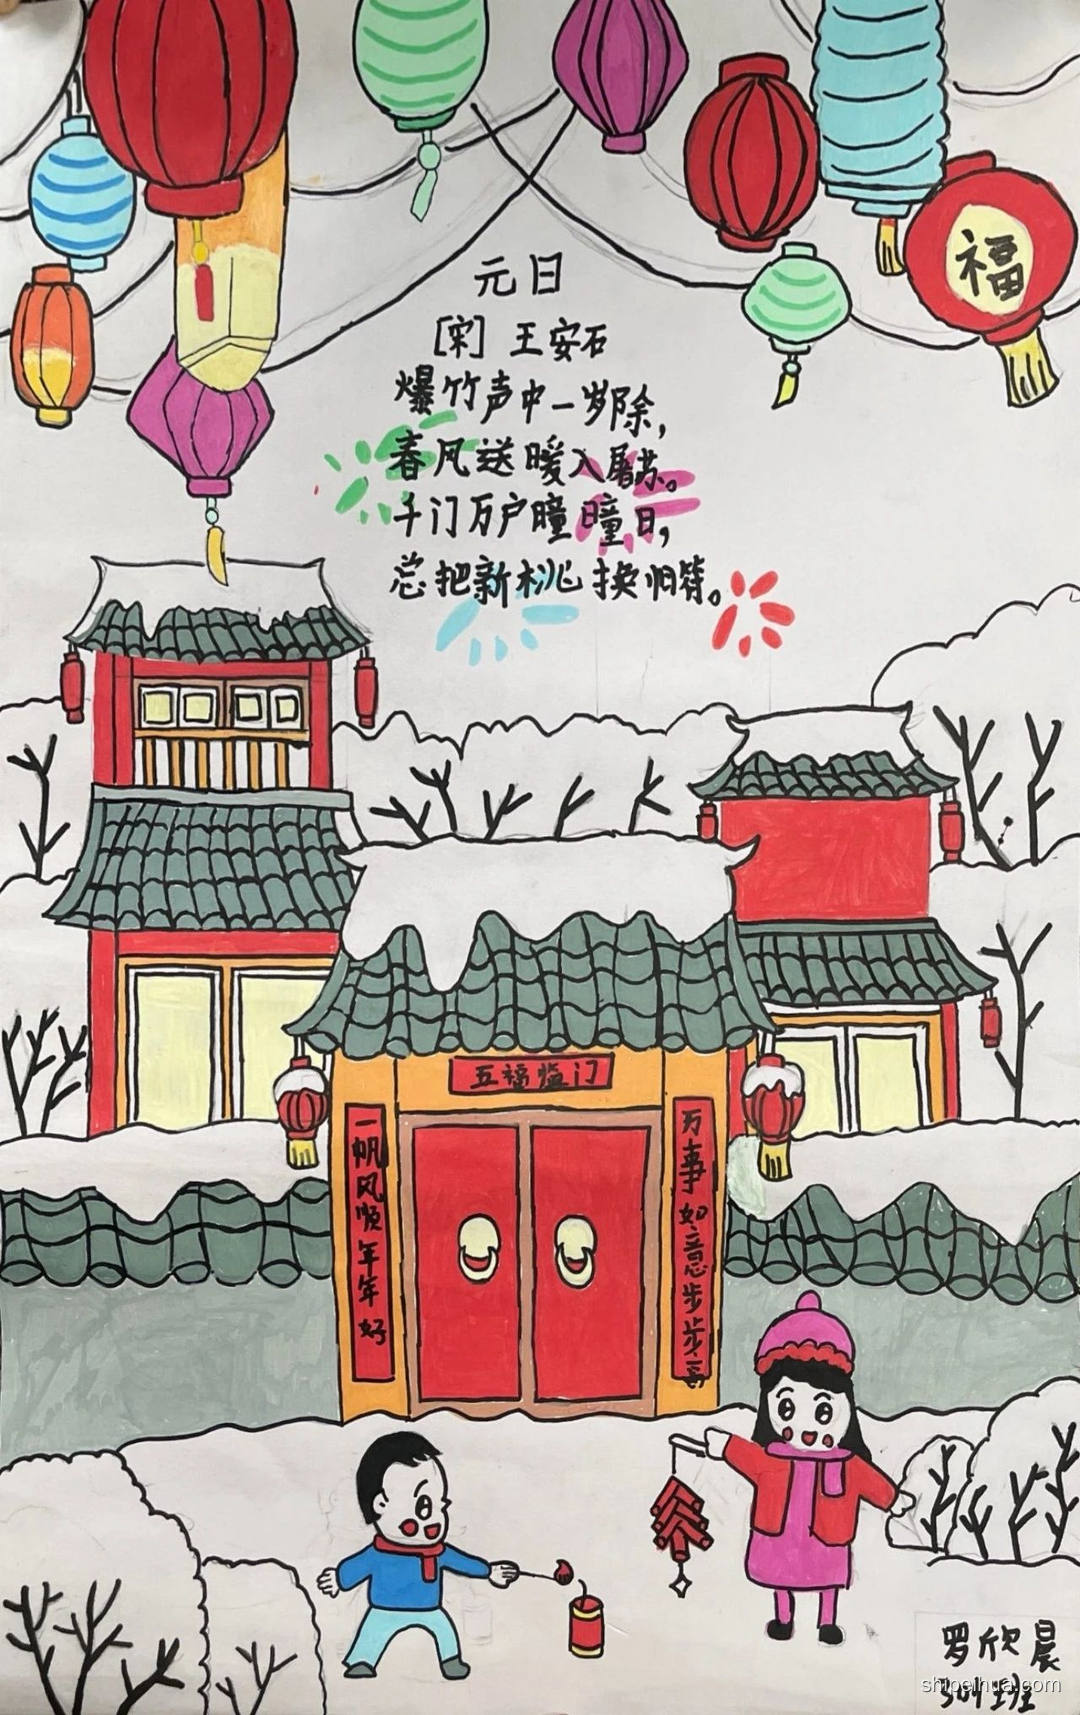 福
元日
[宋] 王安石
爆竹声中一岁除，
春风送暖入屠苏。
千门万户曈曈日，
总把新桃换旧符。
五福临门
一帆风顺年年好
万事如意步步高
罗欣晨
301班
shipeihua.com